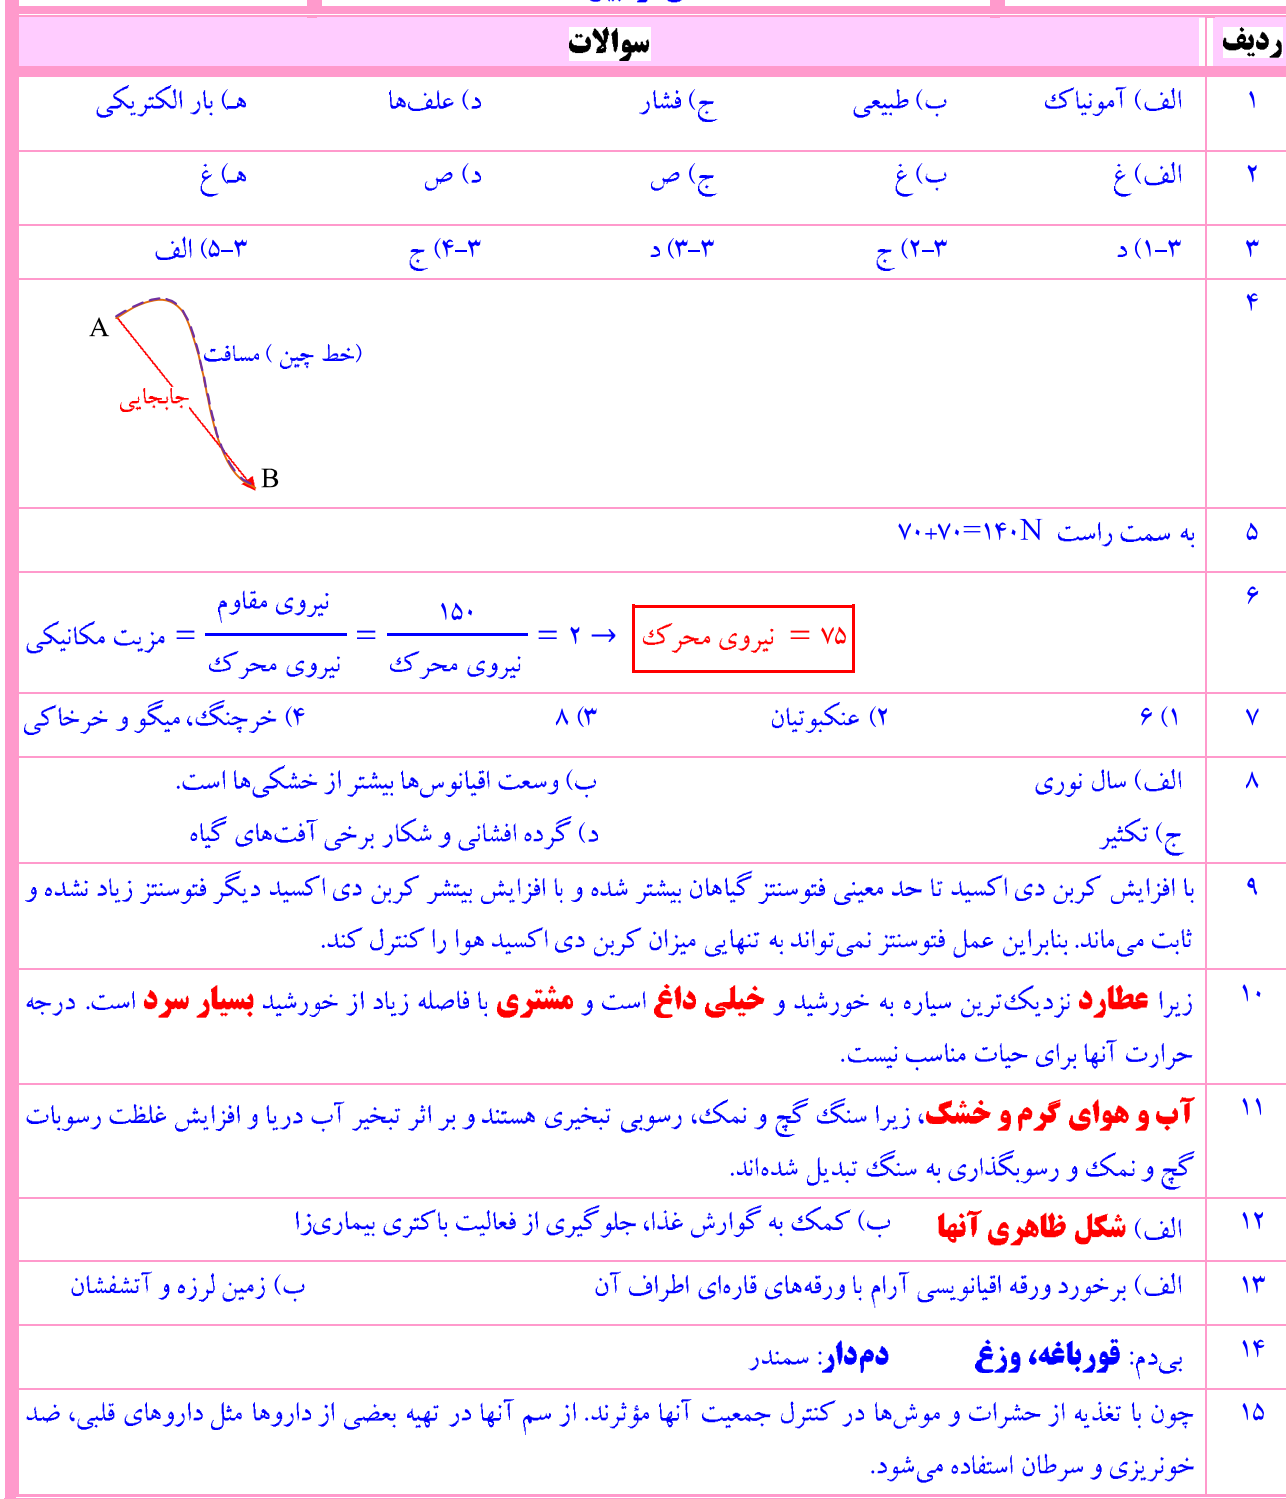 ردیف	سوالات
۱	الف) آمونیاک	ب) طبیعی	ج) فشار	د) علف‌ها	هـ) بار الکتریکی
۲	الف) غ	ب) غ	ج) ص	د) ص	هـ) غ
۳	۳-۱) د	۳-۲) ج	۳-۳) د	۳-۴) ج	۳-۵) الف
۴
A
مسافت ( خط چین)
جابجایی
B
۵	به سمت راست ۷۰+۷۰=۱۴۰N
۶	مزیت مکانیکی = نیروی مقاوم / نیروی محرک = ۱۵۰ / نیروی محرک = ۲ → نیروی محرک = ۷۵
۷	۱) ۶	۲) عنکبوتیان	۳) ۸	۴) خرچنگ، میگو و خرخاکی
۸	الف) سال نوری	ب) وسعت اقیانوس‌ها بیشتر از خشکی‌ها است.
ج) تکثیر	د) گرده افشانی و شکار برخی آفت‌های گیاه
۹	با افزایش کربن دی اکسید تا حد معینی فتوسنتز گیاهان بیشتر شده و با افزایش بیتشر کربن دی اکسید دیگر فتوسنتز زیاد نشده و
ثابت می‌ماند. بنابراین عمل فتوسنتز نمی‌تواند به تنهایی میزان کربن دی اکسید هوا را کنترل کند.
۱۰	زیرا عطارد نزدیک‌ترین سیاره به خورشید و خیلی داغ است و مشتری با فاصله زیاد از خورشید بسیار سرد است. درجه
حرارت آنها برای حیات مناسب نیست.
۱۱	آب و هوای گرم و خشک، زیرا سنگ گچ و نمک، رسوبی تبخیری هستند و بر اثر تبخیر آب دریا و افزایش غلظت رسوبات
گچ و نمک و رسوبگذاری به سنگ تبدیل شده‌اند.
۱۲	الف) شکل ظاهری آنها	ب) کمک به گوارش غذا، جلوگیری از فعالیت باکتری بیماری‌زا
۱۳	الف) برخورد ورقه اقیانویسی آرام با ورقه‌های قاره‌ای اطراف آن	ب) زمین لرزه و آتشفشان
۱۴	بی‌دم: قورباغه، وزغ	دم‌دار: سمندر
۱۵	چون با تغذیه از حشرات و موش‌ها در کنترل جمعیت آنها مؤثرند. از سم آنها در تهیه بعضی از داروها مثل داروهای قلبی، ضد
خونریزی و سرطان استفاده می‌شود.